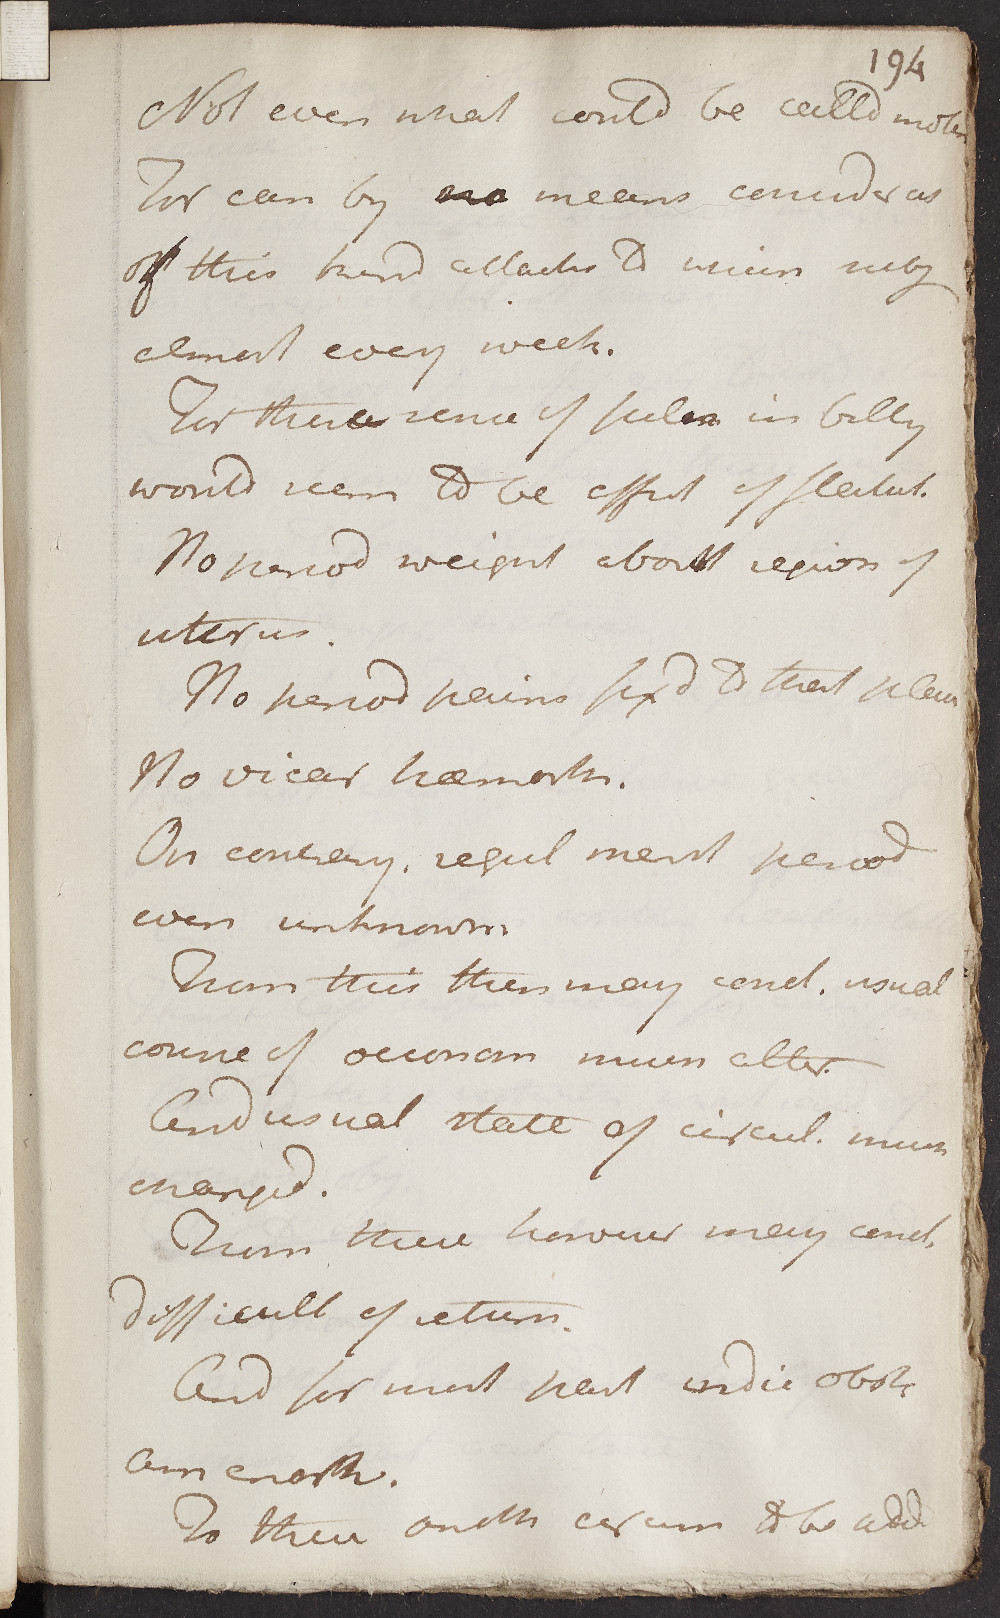 194
Not even what could be calld molim
For can by no means consider as
of this kind attacks to which subj
almost every week.
For these sense of pulsn in belly
would seem to be effect of flatul.
No period weight about region of
uterus.
No period pains fixd to that place
No vicar hæmorh.
On contrary. regul menst period
even unknown
From this then may concl. usual
course of oeconom much alter.
And usual state of circul. much
changed.
From these however may concl.
difficult of return.
And for most part indic obst
amenorrh.
To these anoth circum to be add